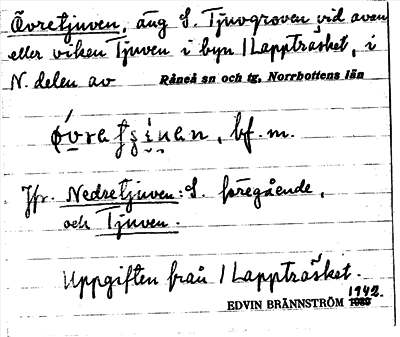 Övretjuven, äng S. Tjuvgroven vid aven
eller viken Tjuven i byn 1 Lappträsket, i
N. delen av Råneå sn och tg, Norrbottens län
bf. m.
Jfr. Nedretjuven: S. föregående,
och Tjuven.
Uppgiften från 1 Lappträsket.
1942.
EDVIN BRÄNNSTRÖM